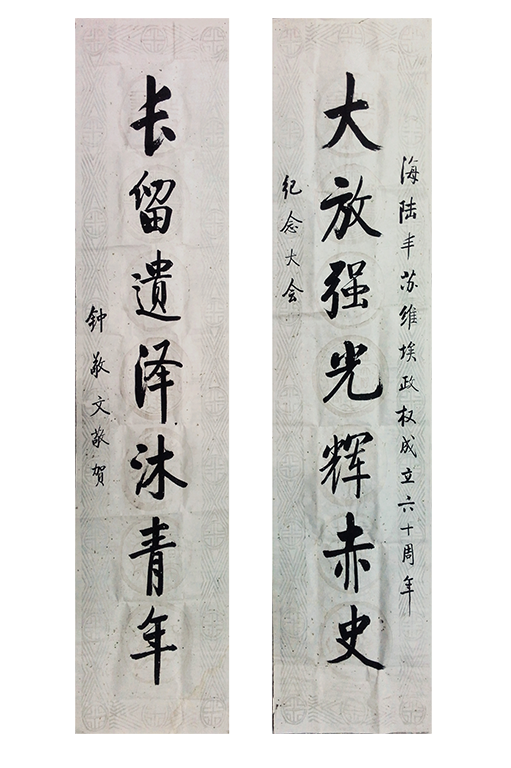 海陆丰苏维埃政权成立六十周年
大放强光辉赤史
纪念大会
长留遗泽沐青年
钟敬文敬贺